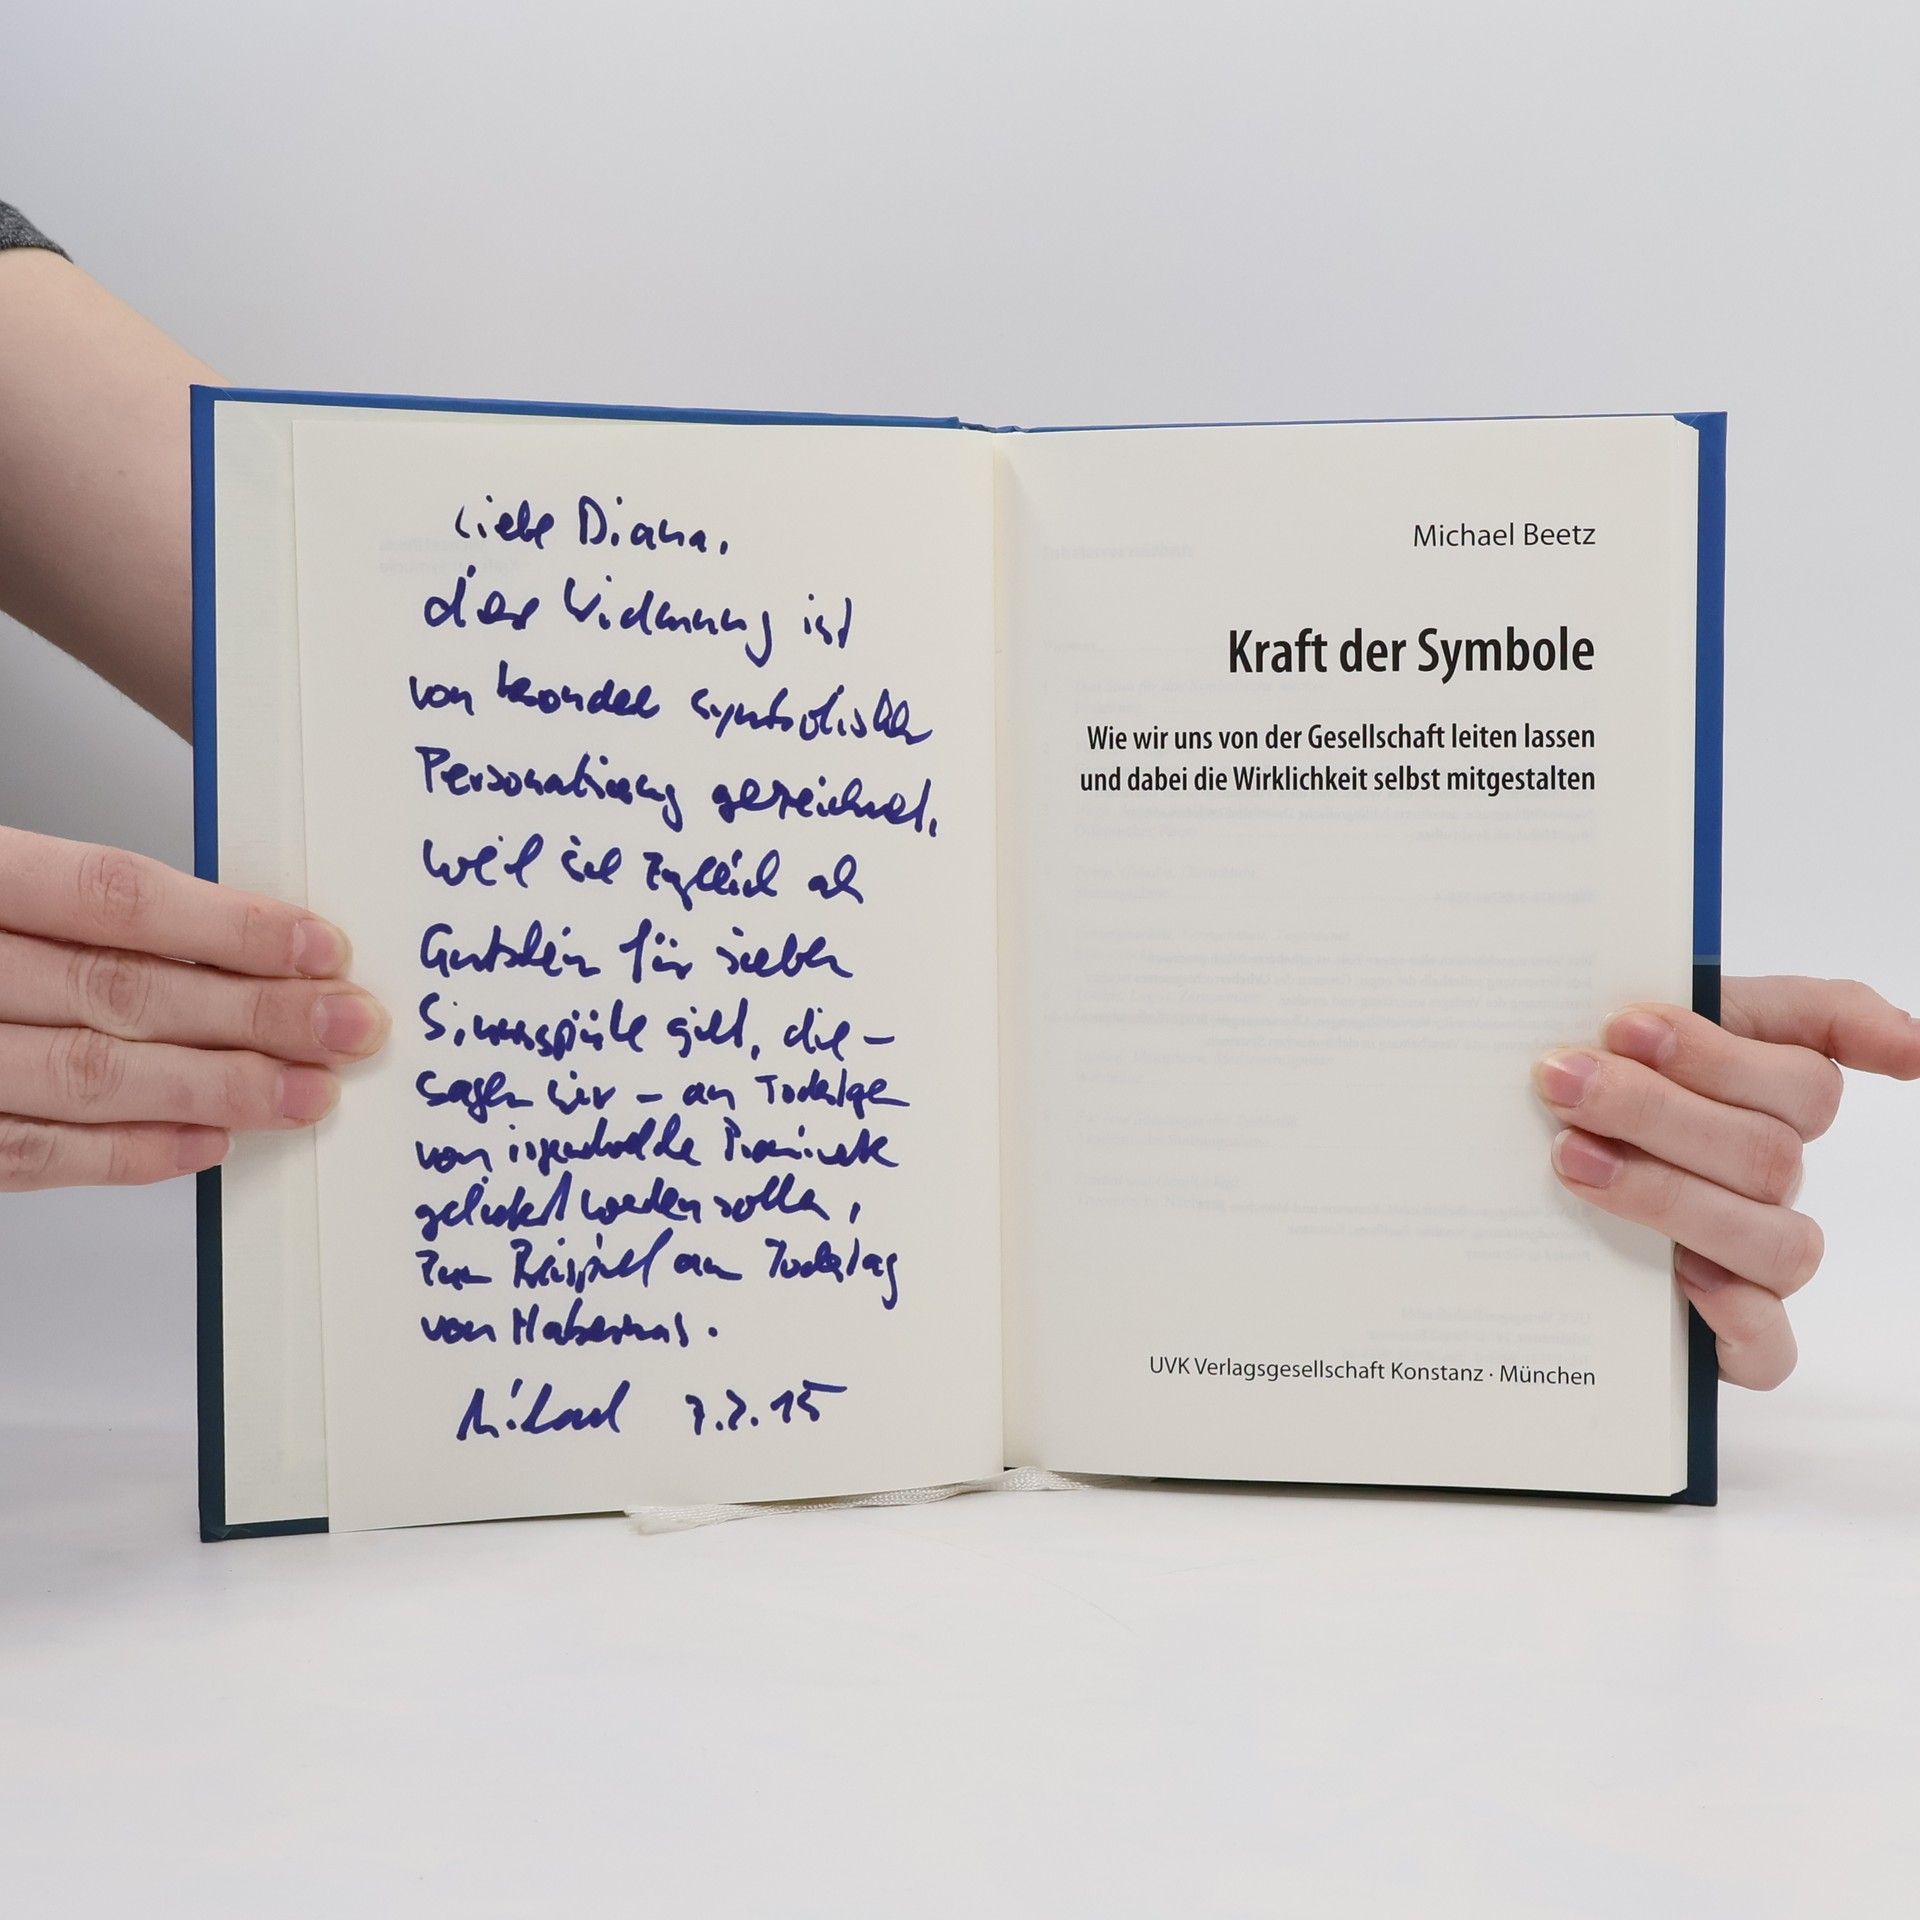 Liebe Diana,
diese Widmung ist
von besonderer symbolischer
gezeichnet,
weil sie zugleich als
Gutschein für sieben
gilt, die –
sagen wir – an Todestagen
von irgendwelche Prominente
geliefert werden sollen,
zum Beispiel am Todestag
von Habermas.
Michael 7.7.15
Michael Beetz
Kraft der Symbole
Wie wir uns von der Gesellschaft leiten lassen
und dabei die Wirklichkeit selbst mitgestalten
UVK Verlagsgesellschaft Konstanz · München